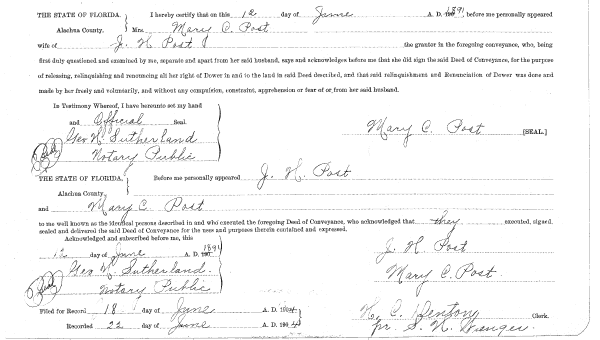 THE STATE OF FLORIDA. I hereby certify that on this 12 day of June A. D. 1891 before me personally appeared
Alachua County. Mrs. Mary C. Post
wife of J. H. Post the grantor in the foregoing conveyance, who, being
first duly questioned and examined by me, separate and apart from her said husband, says and acknowledges before me that she did sign the said Deed of Conveyance, for the purpose
of releasing, relinquishing and renouncing all her right of Dower in and to the land in said Deed described, and that said relinquishment and Renunciation of Dower was done and
made by her freely and voluntarily, and without any compulsion, constraint, apprehension or fear of or from her said husband.
In Testimony Whereof, I have hereunto set my hand
and Official Seal.
Geo N. Sutherland
Notary Public
Seal
Mary C. Post [SEAL.]
THE STATE OF FLORIDA. Before me personally appeared J. H. Post
Alachua County.
and Mary C. Post
to me well known as the identical persons described in and who executed the foregoing Deed of Conveyance, who acknowledged that they executed, signed,
sealed and delivered the said Deed of Conveyance for the uses and purposes therein contained and expressed.
Acknowledged and subscribed before me, this
12 day of June A. D. 1891
Geo N. Sutherland.
Notary Public
Seal
J. H. Post
Mary C. Post.
Filed for Record 18 day of June A. D. 1904
Recorded 22 day of June A. D. 1904
H. C. Denton Clerk.
pr. S. H. Wienges.